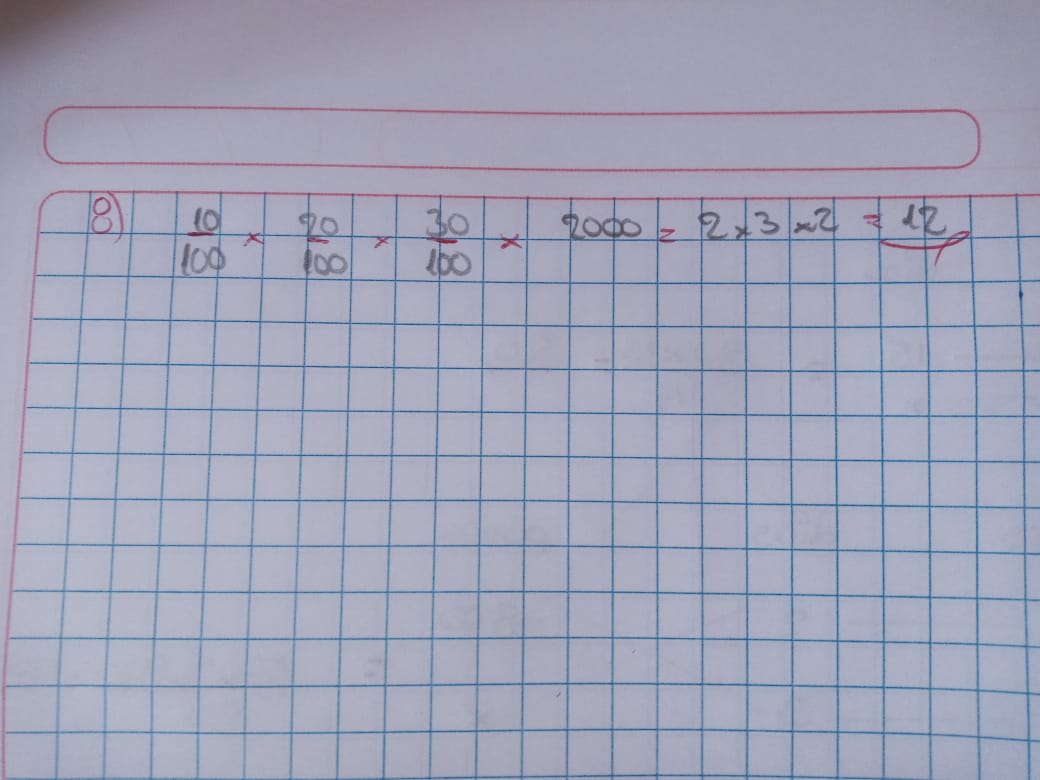 8) 10/100 × 20/100 × 30/100 × 2000 = 2×3×2 = 12